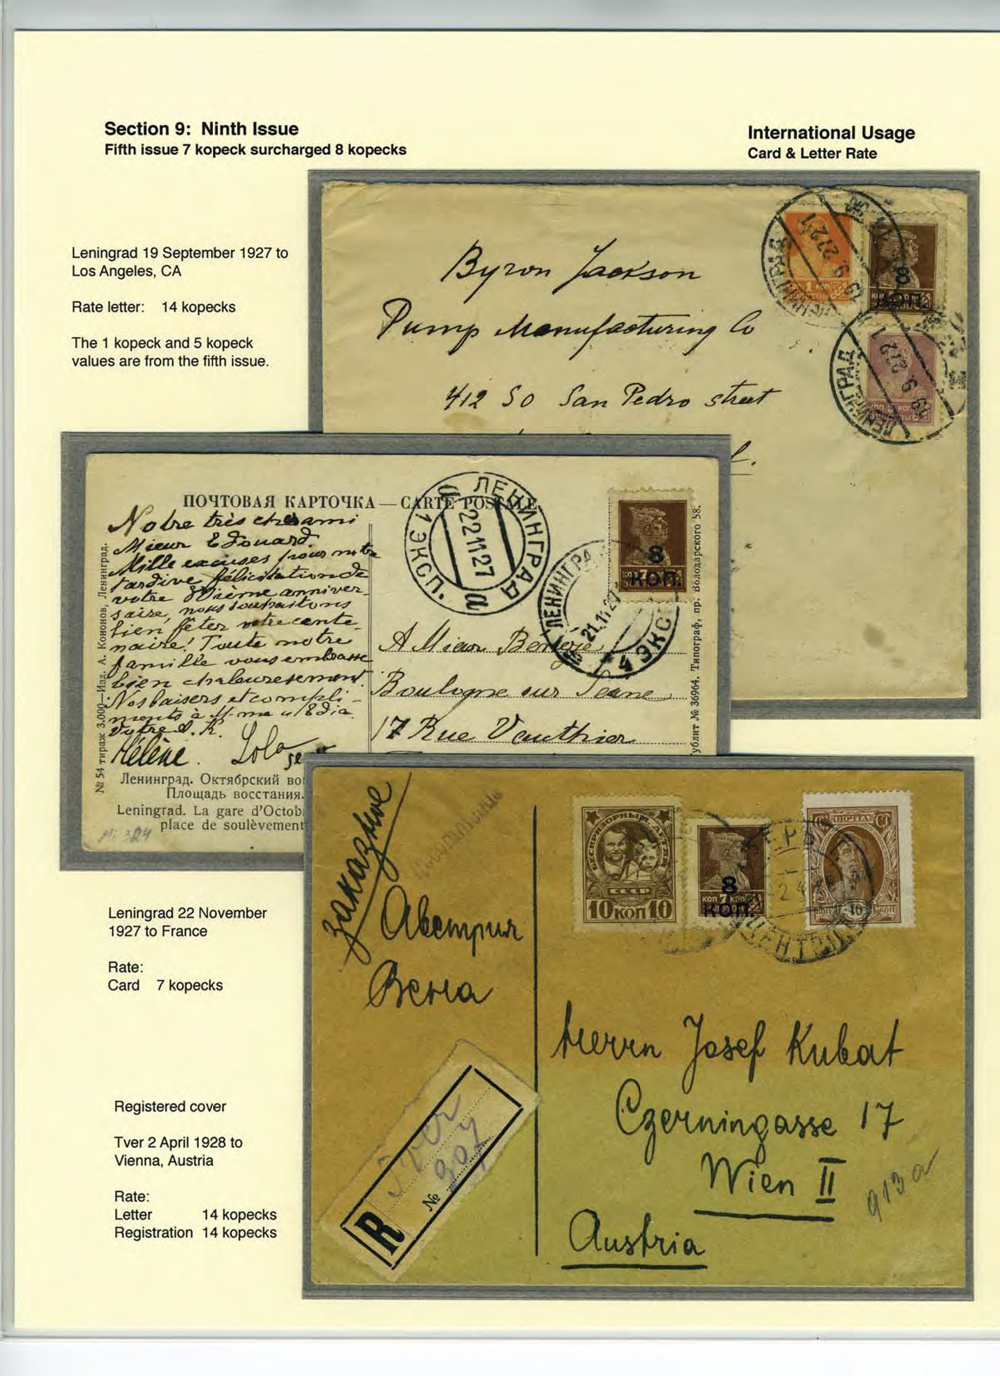 Section 9: Ninth Issue
Fifth issue 7 kopeck surcharged 8 kopecks
International Usage
Card & Letter Rate
Leningrad 19 September 1927 to
Los Angeles, CA
Rate letter: 14 kopecks
The 1 kopeck and 5 kopeck
values are from the fifth issue.
Byron Jackson
Pump Manufacturing Co
412 So San Pedro street
8
КОП.
ЛЕНИНГРАД
19 9 27
ЛЕНИНГРАД
19 9 27
ПОЧТОВАЯ КАРТОЧКА — CARTE POSTALE
Notre très cher ami
Mieur Edouard
Mille excuses pour notre
tardive félicitation de
votre 80ième anniver-
saire, nous souhaitons
bien fêter votre cente-
naire! Toute notre
famille vous embrasse
bien chaleureusement.
Nos baisers et compli-
ments à
Hélène. Lola
ЛЕНИНГРАД
1 ЭКСП.
22 11 27
а
ЛЕНИНГРАД
21.11.27
4 ЭКС
8
КОП.
A Mieur
Boulogne sur Seine
17 Rue Vauthier
№ 54 тираж 3.000—Изд. А. Кононов, Ленинград.
№ 36964. Типограф. пр. Володарского 58.
Ленинград. Октябрский во
Площадь восстания.
Leningrad. La gare d'Octob
place de soulèvement
Leningrad 22 November
1927 to France
Rate:
Card 7 kopecks
заказное
Австрия
Вена
БЕСПРИЗОРНЫМ ДЕТЯМ
СССР
10 КОП 10
8
КОП 7 КОП
КОП.
10
Herrn Josef Kubat
Czerningasse 17
Wien II
Austria
913a
R
Tver
№ 907
Registered cover
Tver 2 April 1928 to
Vienna, Austria
Rate:
Letter 14 kopecks
Registration 14 kopecks